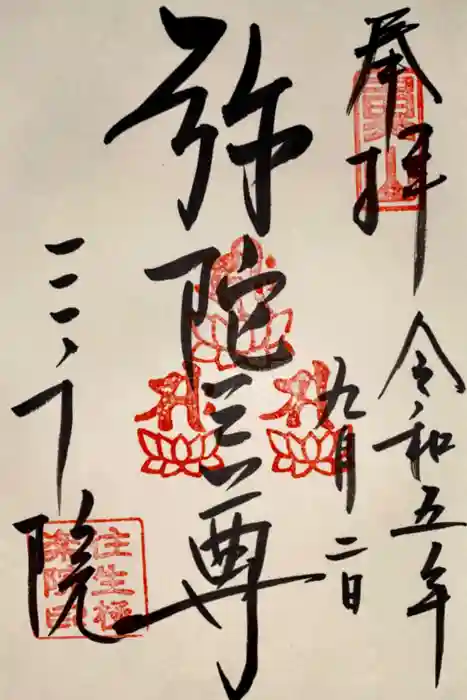 奉拝
令和五年
九月二日
弥陀三尊
三千院
往生極
楽院印